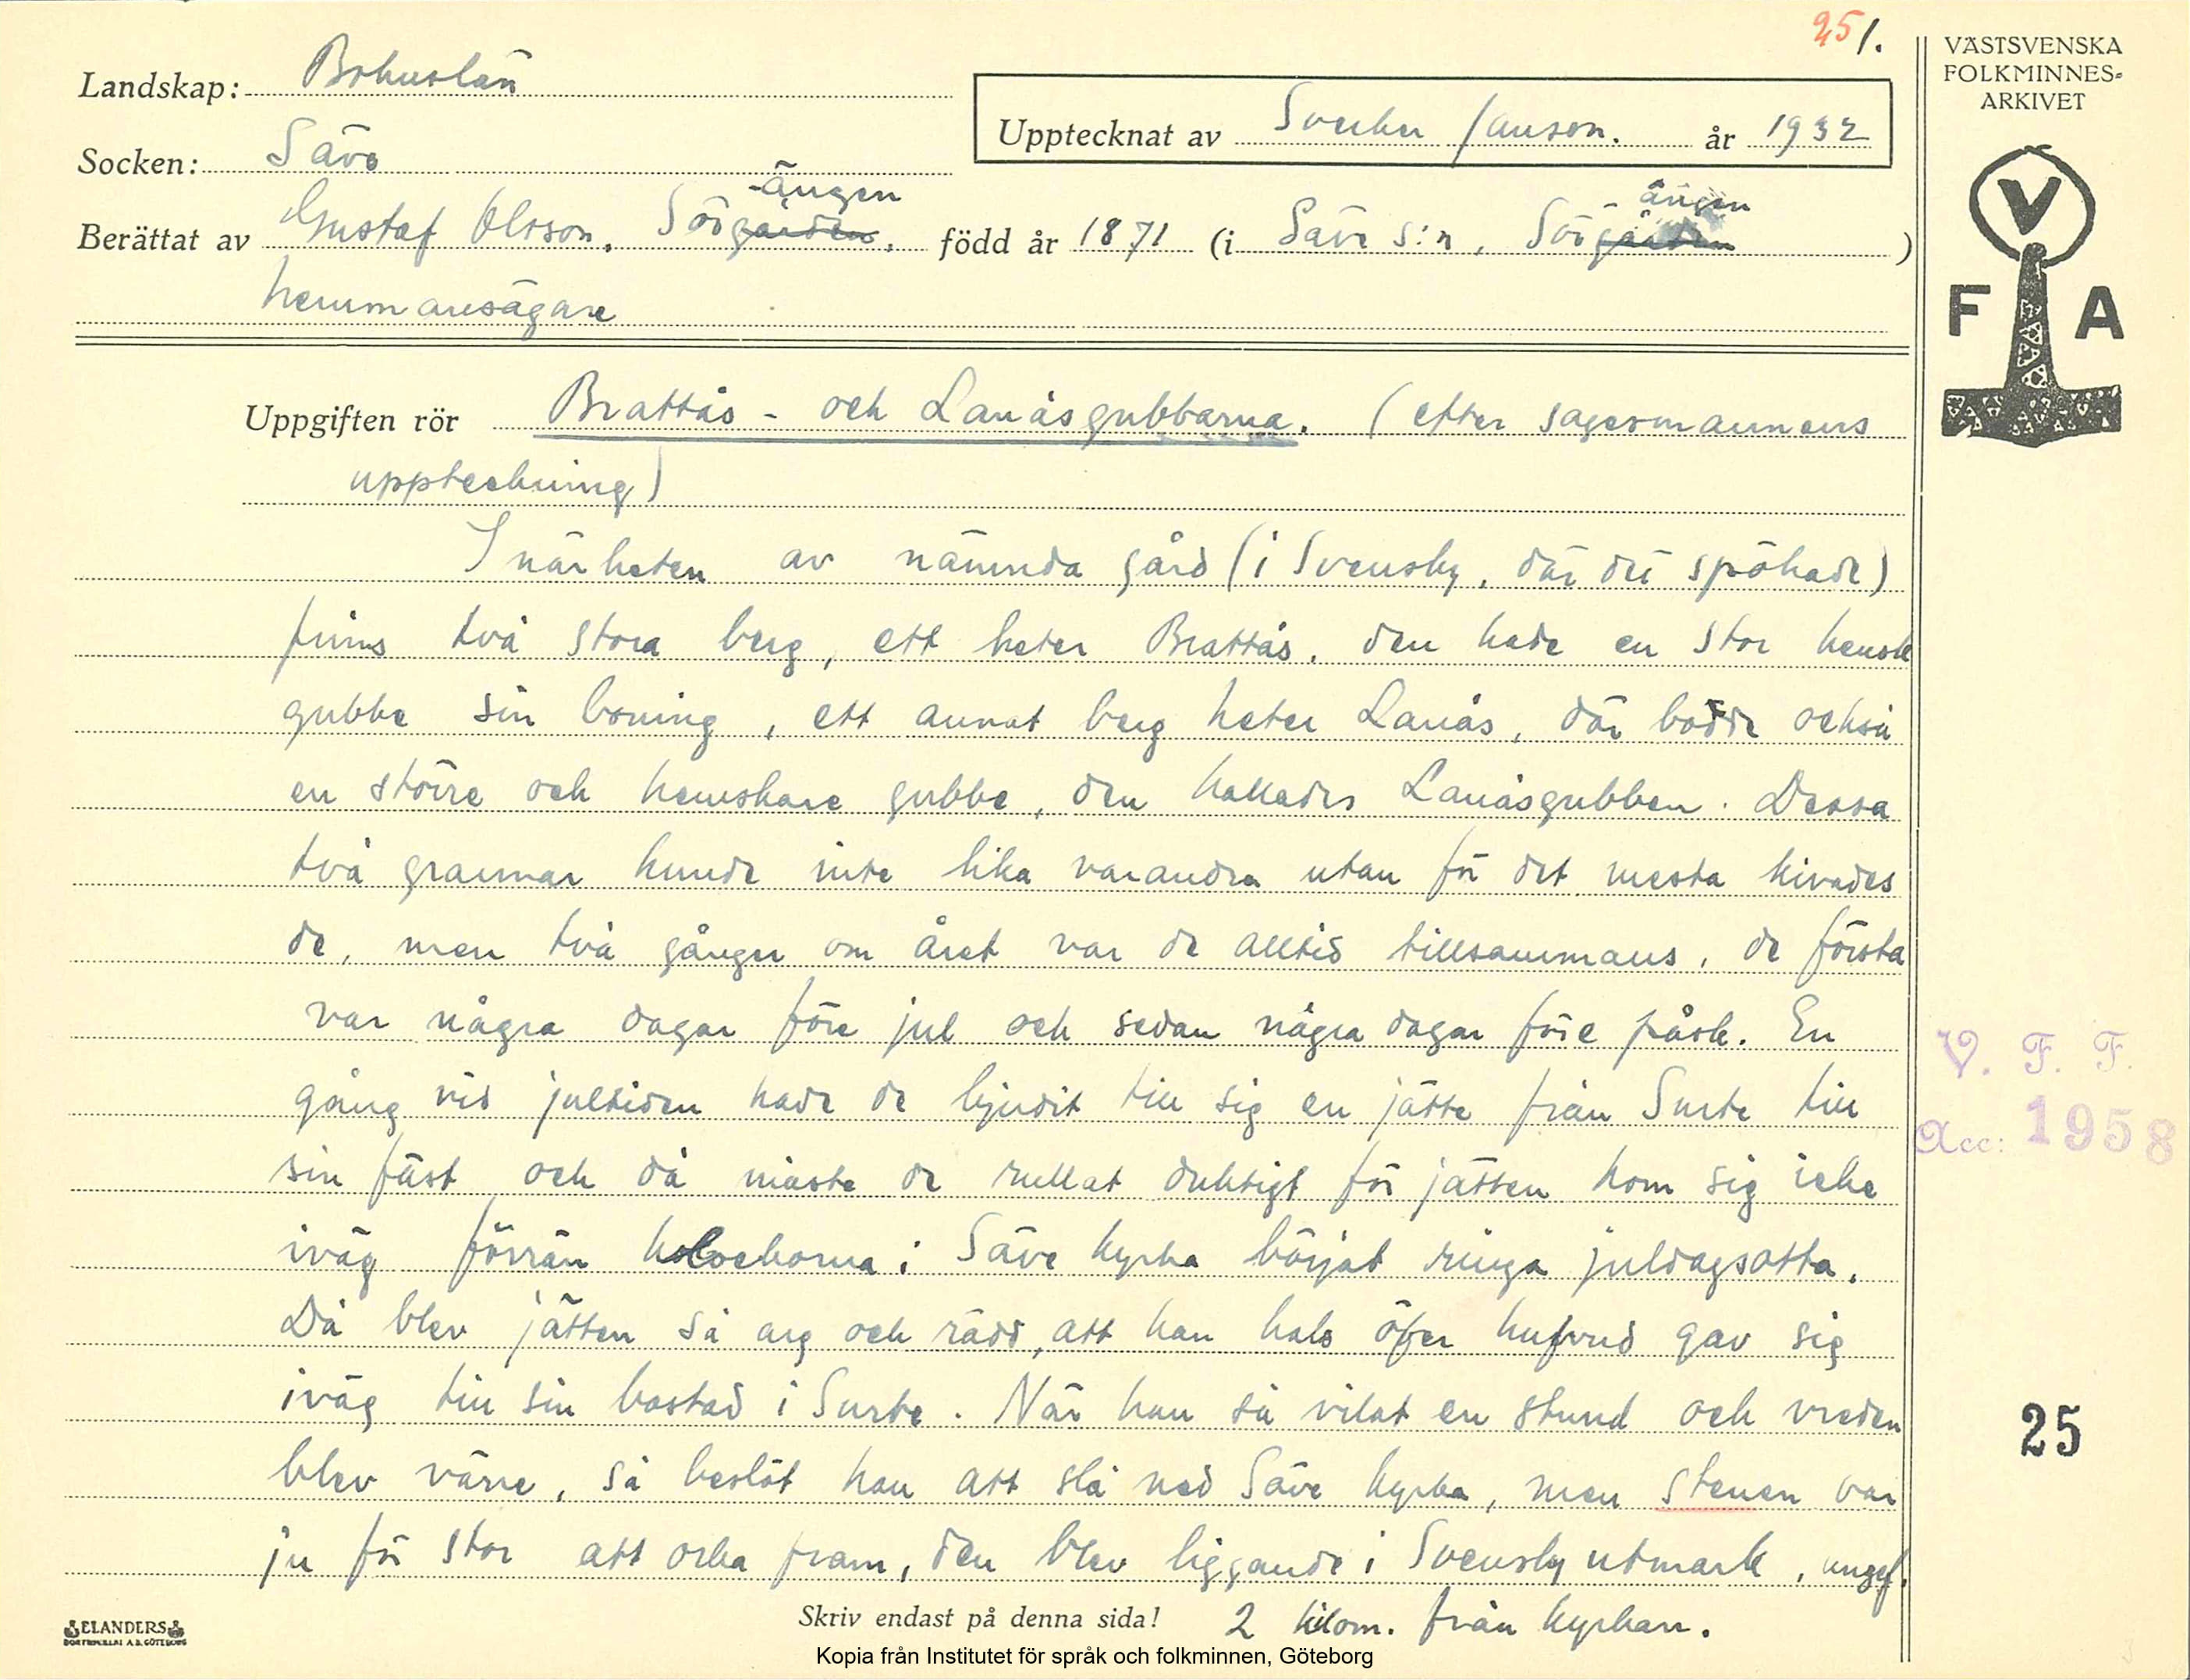 251.
VÄSTSVENSKA
FOLKMINNES-
ARKIVET
Landskap: Bohuslän
Upptecknat av Sverker Janson. år 1932
Socken: Säve
-ängen ängen
Berättat av Gustaf Olsson, Sörgården, född år 1871 (i Säve s:n, Sörgården )
hemmansägare
V
F A
Uppgiften rör Brattås- och Lanåsgubbarna. (efter sagesmannens
uppteckning)
I närheten av nämnda gård (i Svensby, där det spökade)
finns två stora berg, ett heter Brattås, den hade en stor hemsk
gubbe sin boning, ett annat berg heter Lanås, där bodde också
en större och hemskare gubbe, den kallades Lanåsgubben. Dessa
två grannar kunde inte lika varandra utan för det mesta kivades
de, men två gånger om året var de alltid tillsammans, de första
var några dagar före jul och sedan några dagar före påsk. En
gång vid jultiden hade de bjudit till sig en jätte från Surte till
sin fäst och då måste de rullat duktigt för jätten kom sig icke
iväg förrän klockorna i Säve kyrka börjat ringa juldagsotta.
Då blev jätten så arg och rädd, att han hals öfver hufvud gav sig
iväg till sin bostad i Surte. När han så vilat en stund och vreden
blev värre, så beslöt han att slå ned Säve kyrka, men stenen var
ju för stor att orka fram, den blev liggande i Svensby utmark, ungef.
2 kilom. från kyrkan.
V. F. F.
Acc: 1958
25
ELANDERS
BOKTRYCKERI A.B. GÖTEBORG
Skriv endast på denna sida!
Kopia från Institutet för språk och folkminnen, Göteborg